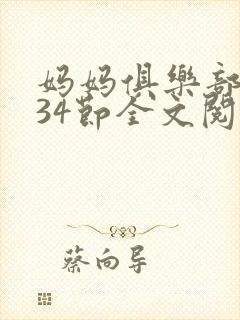 妈妈俱樂部
34節全文閱
蔡向导